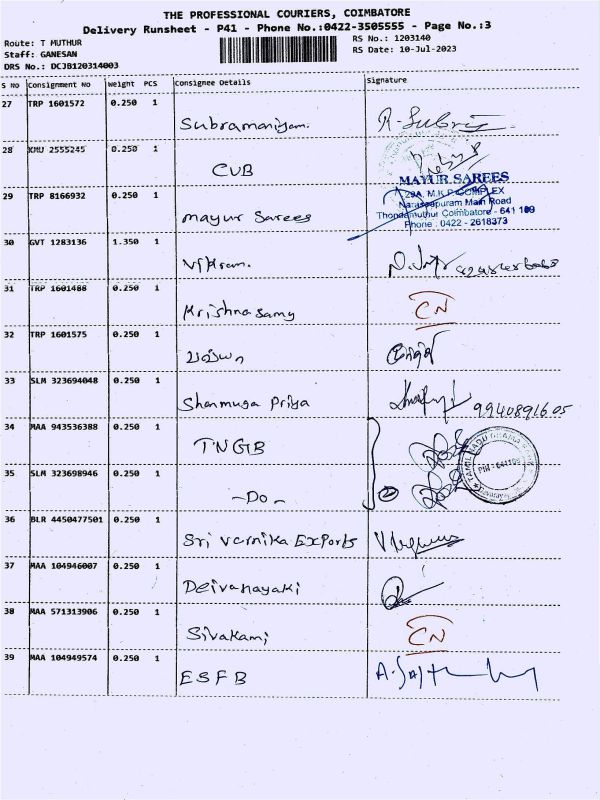 THE PROFESSIONAL COURIERS, COIMBATORE
Delivery Runsheet - P41 - Phone No.:0422-3505555 - Page No.:3
Route: T MUTHUR
RS No.: 1203140
Staff: GANESAN
RS Date: 10-Jul-2023
DRS No.: DCJB120314003
S No Consignment No Weight PCS Consignee Details Signature
27 TRP 1601572 0.250 1
Subramaniyam. R-Subr
28 XMU 2555245 0.250 1
CUB
MAYUR SAREES
29 TRP 8166932 0.250 1
29A, M.K.P. COMPLEX
Naraseapuram Main Road
Mayur Sarees
Thondamuthur Coimbatore - 641 109
Phone : 0422 - 2618373
30 GVT 1283136 1.350 1
Vikram.
31 TRP 1601488 0.250 1
Krishnasamy CN
32 TRP 1601575 0.250 1
33 SLM 323694048 0.250 1
Shanmuga Priya 9940891605
34 MAA 943536388 0.250 1
TNGB
TAMIL NADU GRAMA BANK
PIN - 641109
35 SLM 323698946 0.250 1
2
-Do-
36 BLR 4450477501 0.250 1
Sri Varnika Exports
37 MAA 104946007 0.250 1
Deivanayaki
38 MAA 571313906 0.250 1
Sivakami CN
39 MAA 104949574 0.250 1
ESFB